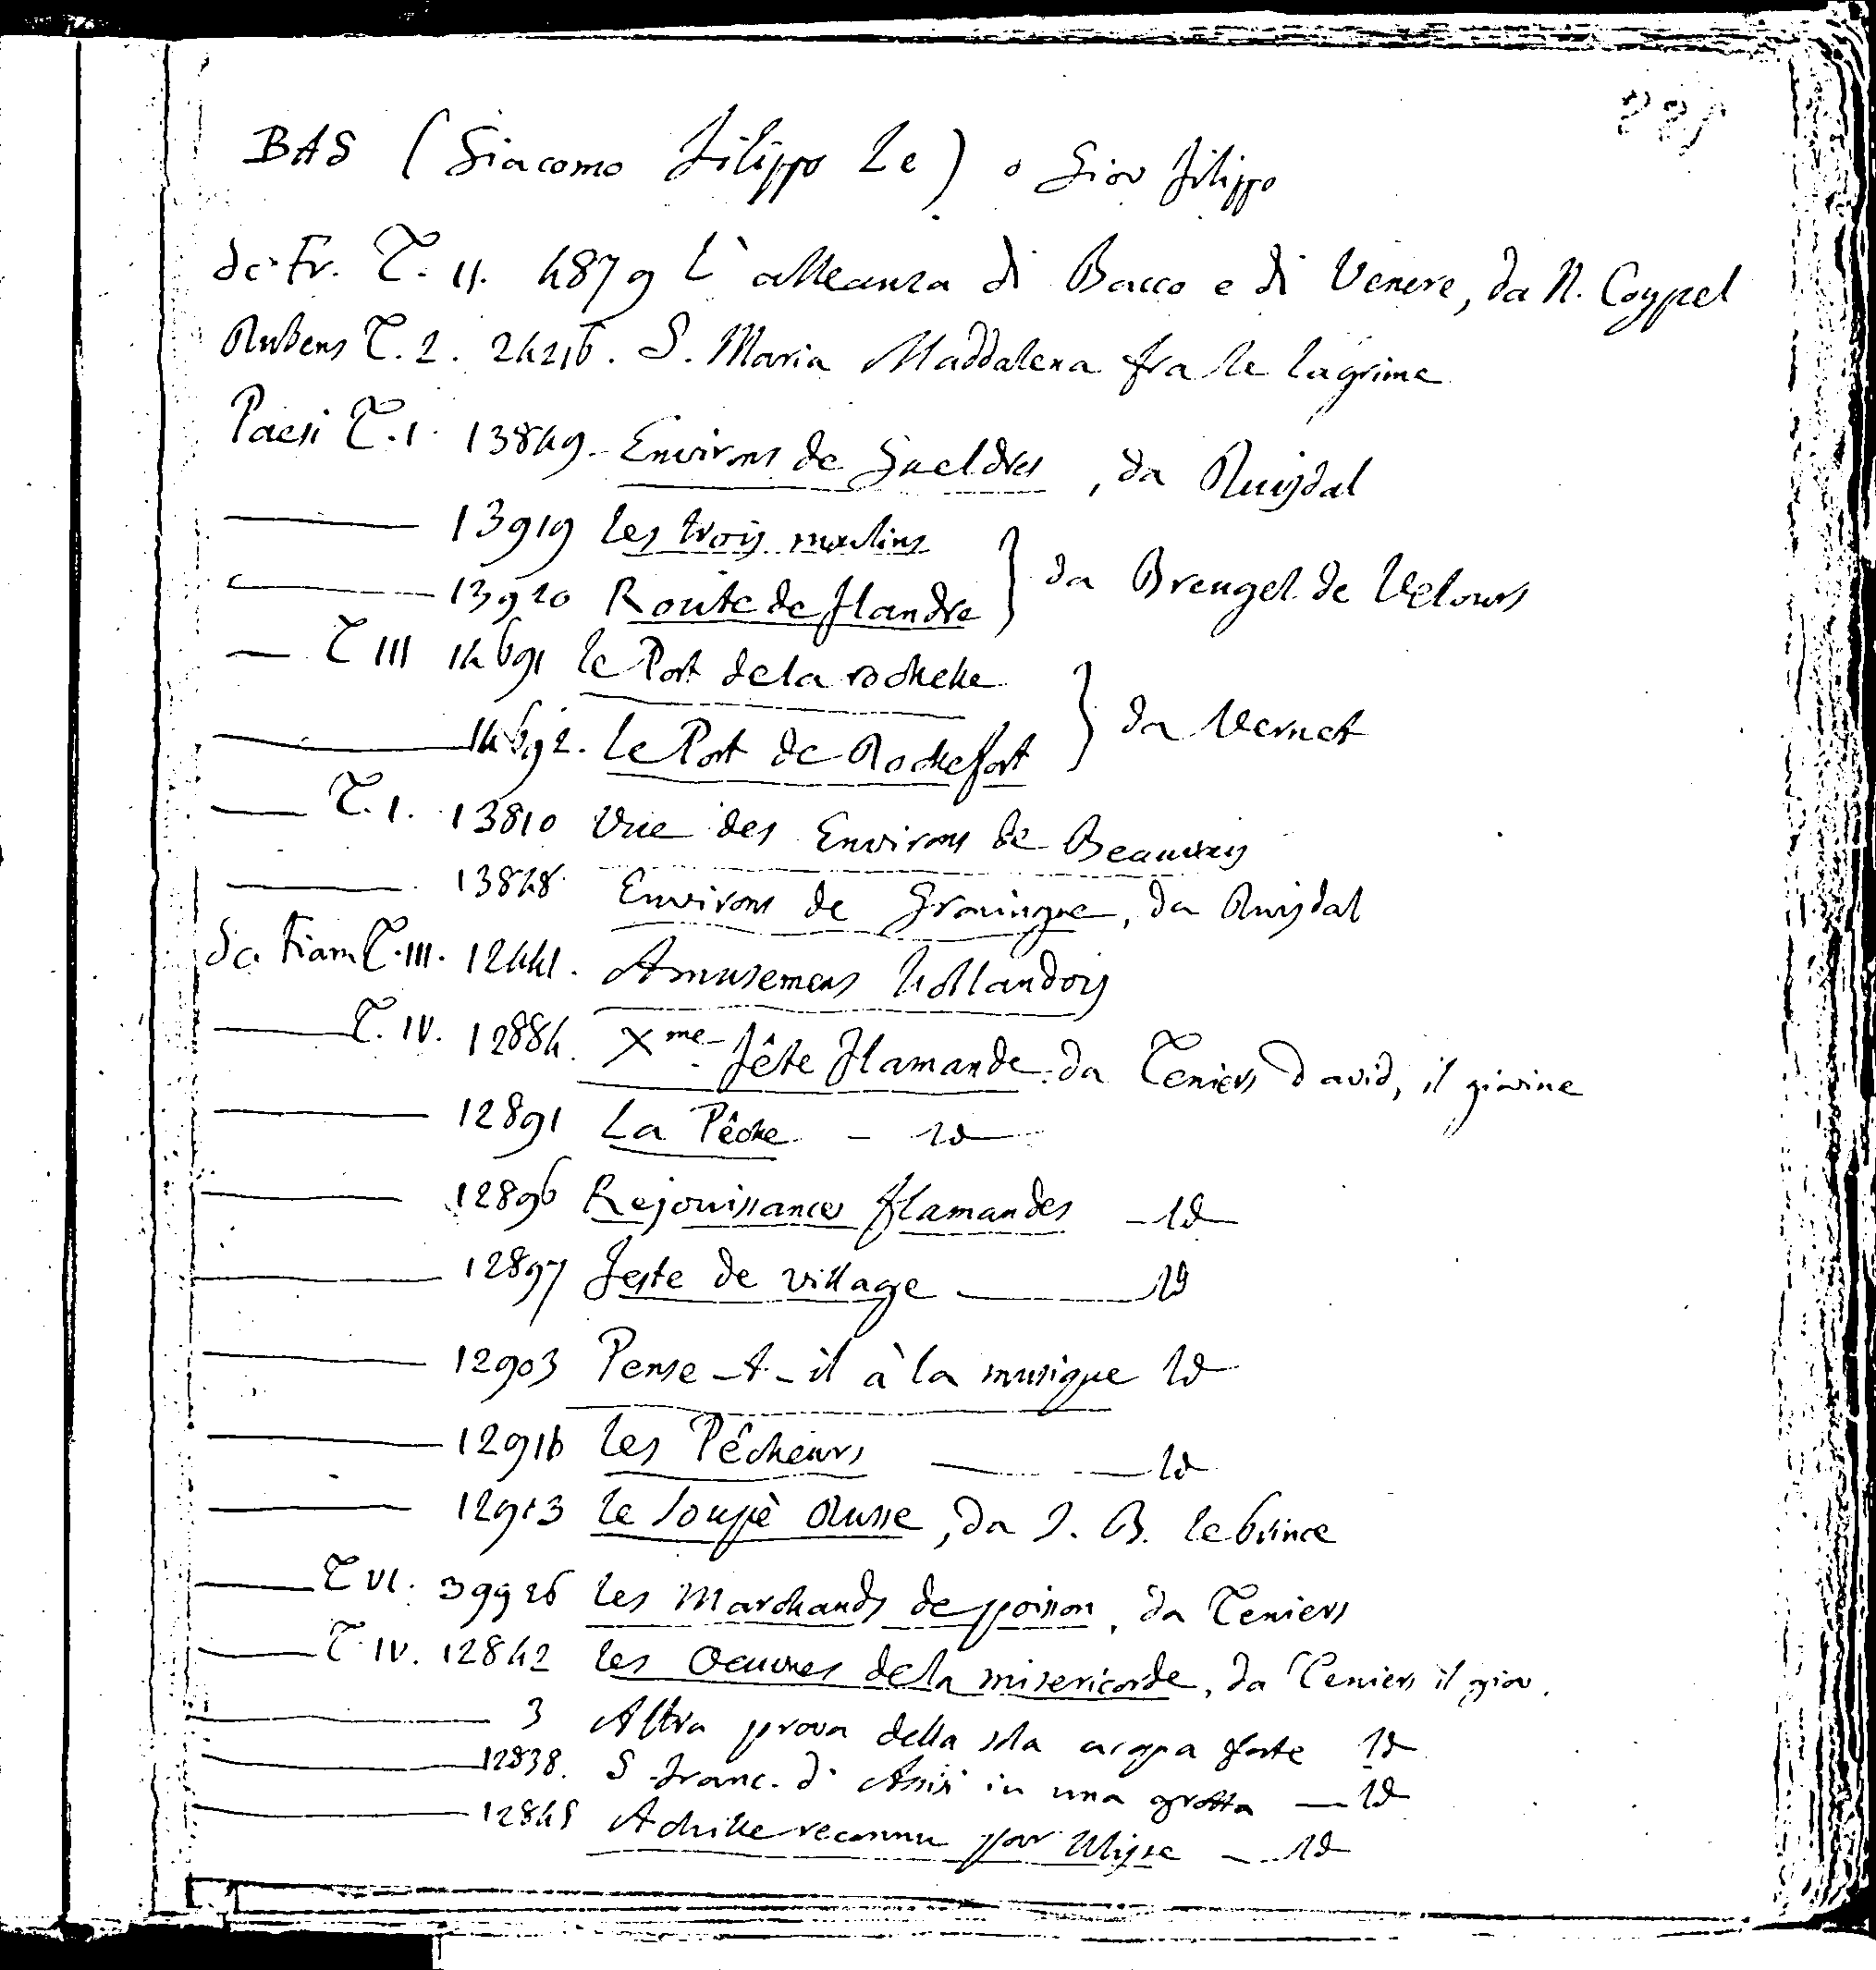 221
BAS (Giacomo Filippo Le) o Giov Filippo
Sc. Fr. T. II. 4879 L'alleanza di Bacco e di Venere, da N. Coypel
Rubens T. 2. 24216. S. Maria Maddalena fra le lagrime
Paesi T. I. 13849. Environs de Gueldres, da Ruisdal
13919 les trois moulins
13920 Route de flandre } da Breugel de Velours
T III 14691 le Port de la rochelle
14692. le Port de Rochefort } da Vernet
T. I. 13810 Vue des Environs de Beauvais
13848. Environs de Groningue, da Ruisdal
Sc. Fiam T. III. 12441. Amusemens hollandois
T. IV. 12884. Xme fête flamande. da Teniers David, il giovine
12891 La Pêche - Id
12896 Rejouissances flamandes - Id
12897 Feste de village Id
12903 Pense-t-il à la musique Id
12916 les Pêcheurs Id
12913 le soupè Russe, da J. B. le prince
T VI. 39926 les Marchands de poisson, da Teniers
T. IV. 12842 les Oeuvres de la misericorde, da Teniers il giov.
3 Altra prova della sola acqua forte Id
12838. S. Franc. d' Assisi in una grotta Id
12845 Achille reconnu par Ulisse - Id